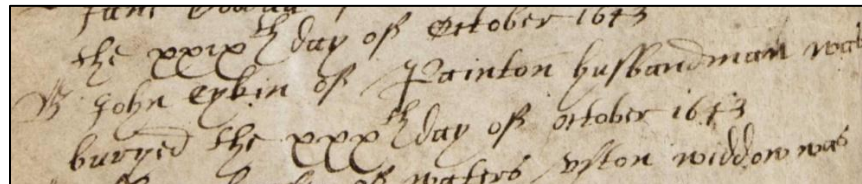 the xxixth day of October 1643
B John Eykin of Painton husbandman was
buryed the xxxth day of october 1643
of waters Upton widdow was